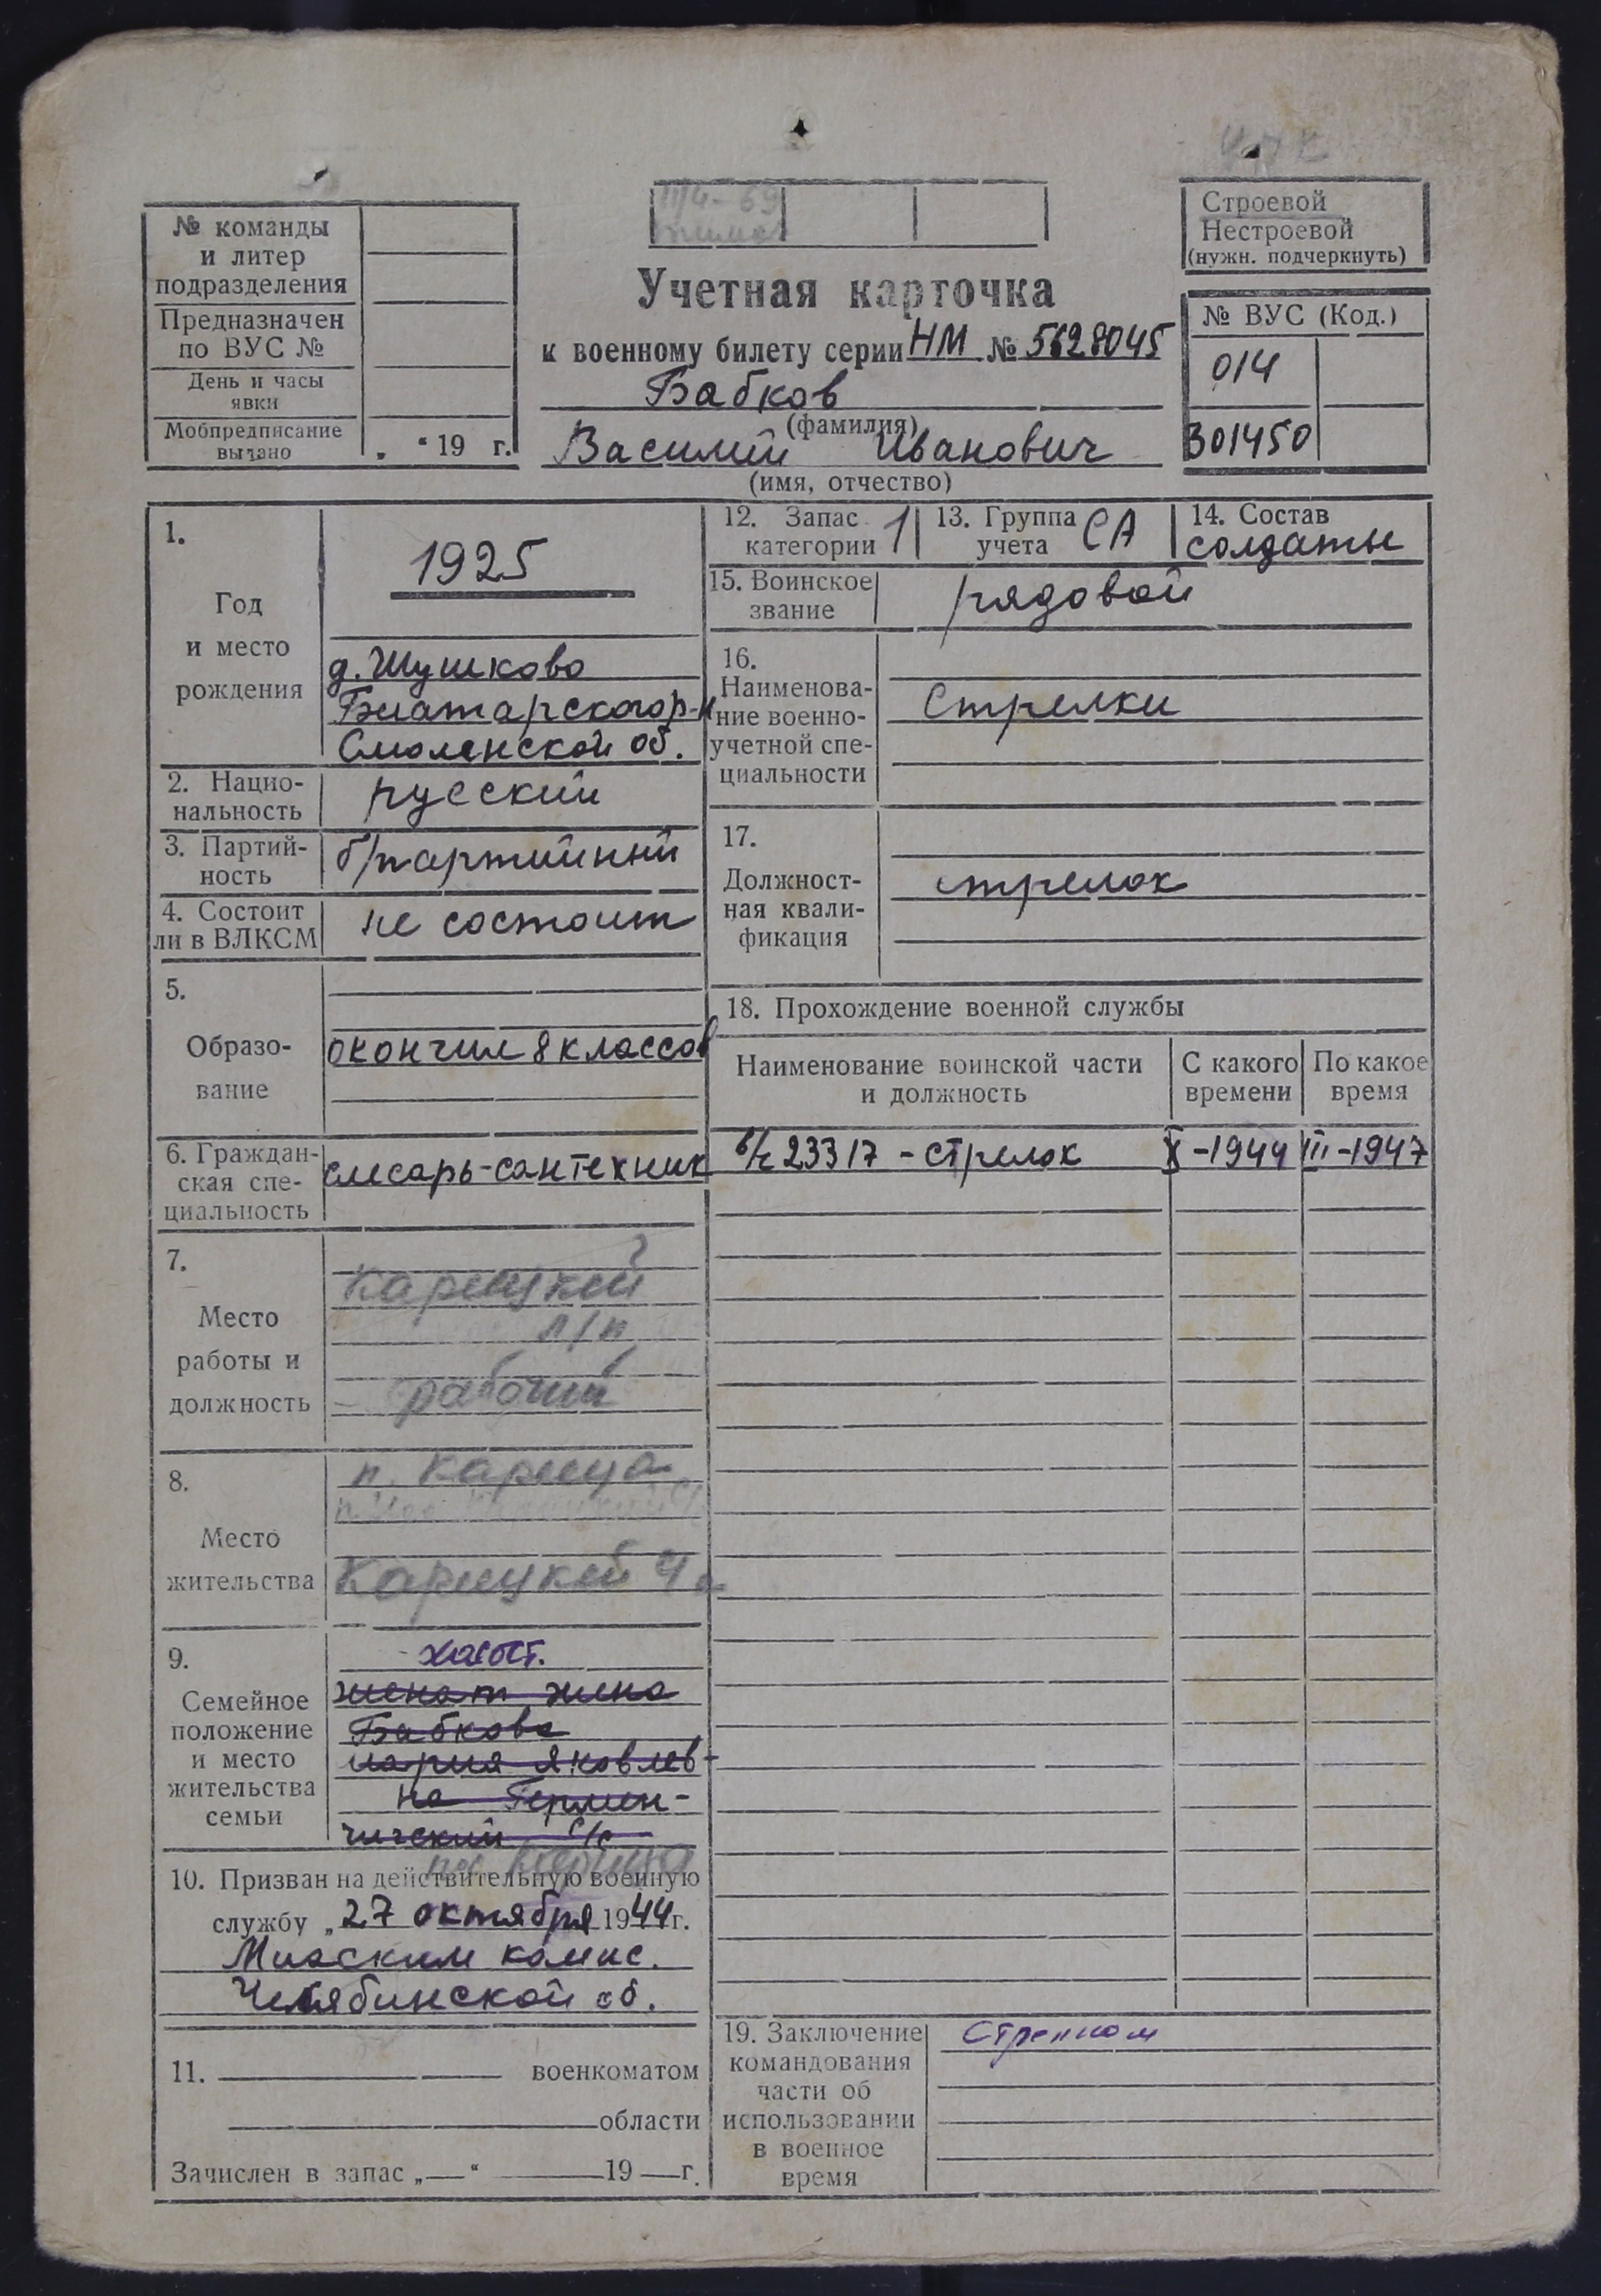 № команды
и литер
подразделения
Предназначен
по ВУС №
День и часы
явки
Мобпредписание
выдано
„ “ 19 г.
Учетная карточка
к военному билету серии НМ № 5628045
Бабков
(фамилия)
Василий Иванович
(имя, отчество)
Строевой
Нестроевой
(нужн. подчеркнуть)
№ ВУС (Код.)
014
301450
1.
Год
и место
рождения
1925
д. Шушково
р-н
Смоленской об.
2. Нацио-
нальность
русский
3. Партий-
ность
б/партийный
4. Состоит
ли в ВЛКСМ
не состоит
5.
Образо-
вание
окончил 8 классов
6. Граждан-
ская спе-
циальность
слесарь-сантехник
7.
Место
работы и
должность
Карицкий
л/п
рабочий
8.
Место
жительства
п. Карица
Карицкий
9.
Семейное
положение
и место
жительства
семьи
холост.
женат жена
Бабкова
мария Яковлев-
на Термен-
чигский с/с
пос. Карица
10. Призван на действительную военную
службу „27 октября 1944 г.
Миаским комис.
Челябинской об.
11. военкоматом
области
Зачислен в запас „—“ 19 — г.
12. Запас
категории 1
13. Группа
учета СА
14. Состав
солдаты
15. Воинское
звание
рядовой
16.
Наименова-
ние военно-
учетной спе-
циальности
Стрелки
17.
Должност-
ная квали-
фикация
стрелок
18. Прохождение военной службы
Наименование воинской части
и должность
С какого
времени
По какое
время
в/ч 23317 - стрелок X-1944 III-1947
19. Заключение
командования
части об
использовании
в военное
время
Стрелком